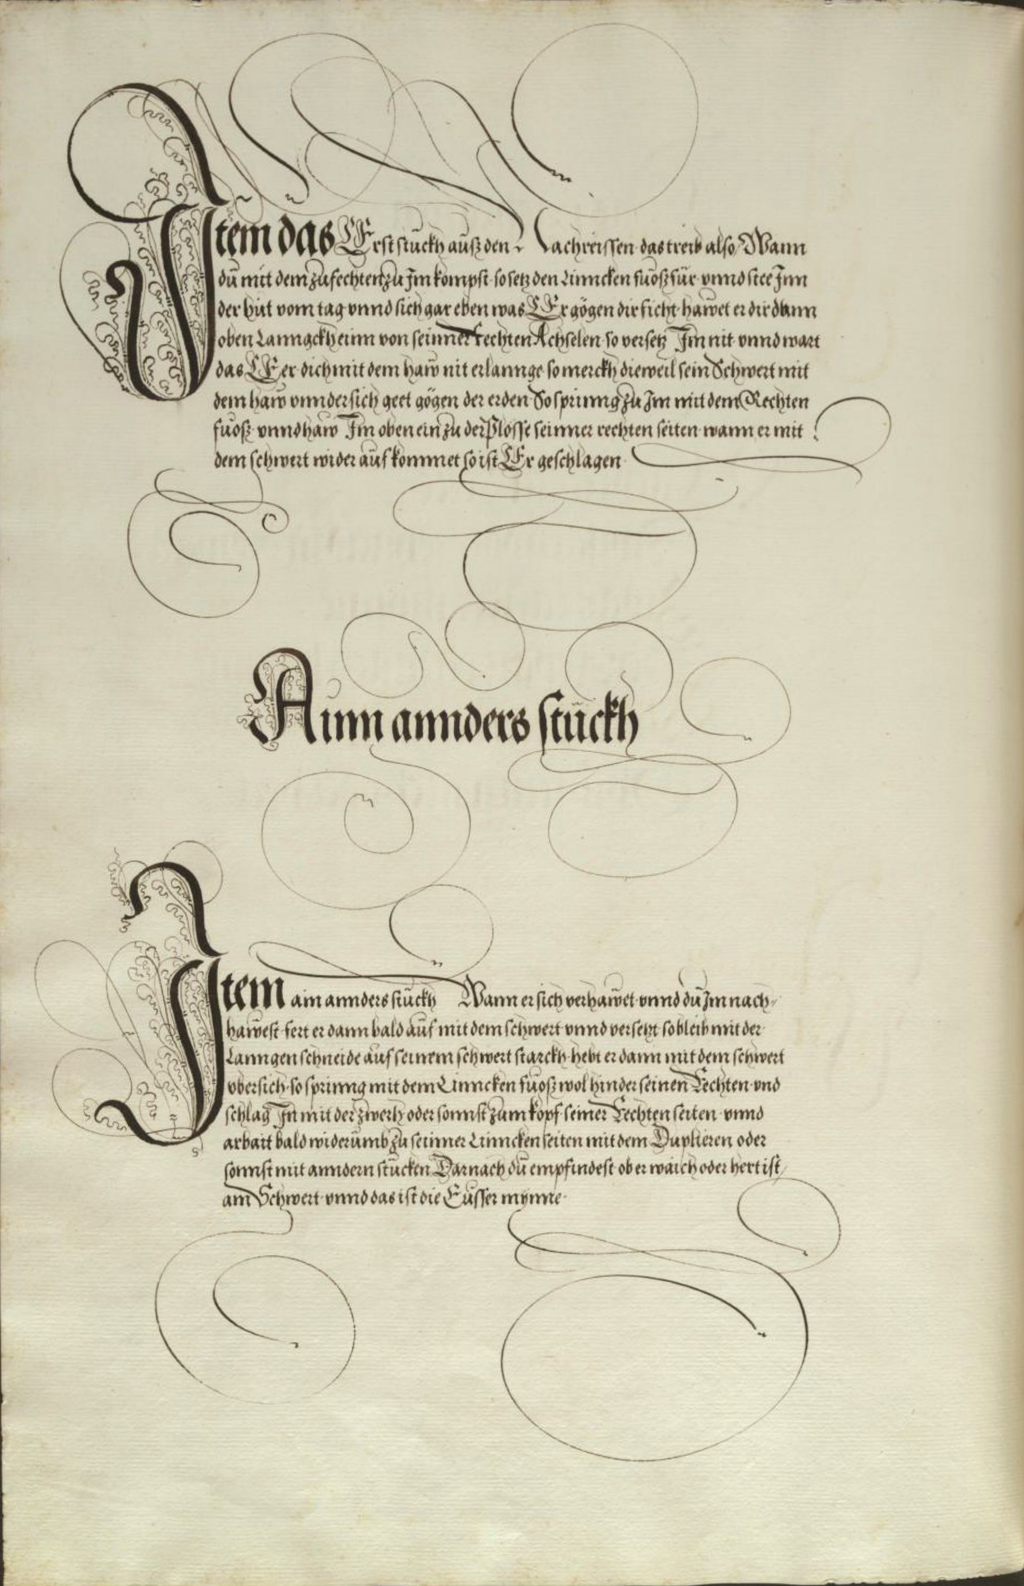 Item das Erst stuckh auß den Nachreissen das treib also Wann
du mit dem zufechten zu Im kompst so setz den Linncken fuoß für vnnd stee Inn
der hut vom tag vnnd sich gar eben was Er gögen dir ficht hawet er dir dann
oben Lanngckh einn von seinner rechten Achselen so versetz Im nit vnnd wart
das Er dich mit dem haw nit erlannge so merckh dieweil sein Schwert mit
dem haw vnndersich geet gögen der erden So sprinng zu Im mit dem Rechten
fuoß vnnd haw Im oben ein zu der Plösse seinner rechten seiten wann er mit
dem schwert wider auf kommet so ist Er geschlagen
Ainn annders stückh
Item ain annders stuckh Wann er sich verhawet vnnd du Im nach
hawest fert er dann bald auf mit dem schwert vnnd versetzt so bleib mit der
Lanngen schneide auf seinem schwert starckh hebt er dann mit dem schwert
vbersich so sprinng mit dem Linncken fuoß wol hinder seinen Rechten vnd
schlag In mit der zwerh oder sonnst zum kopf seiner Rechten seiten vnnd
arbait bald widerumb zu seinner Linncken seiten mit dem Duplieren oder
sonnst mit anndern stucken Darnach du empfindest ob er waich oder hert ist
am Schwert vnnd das ist die Eusser mynne